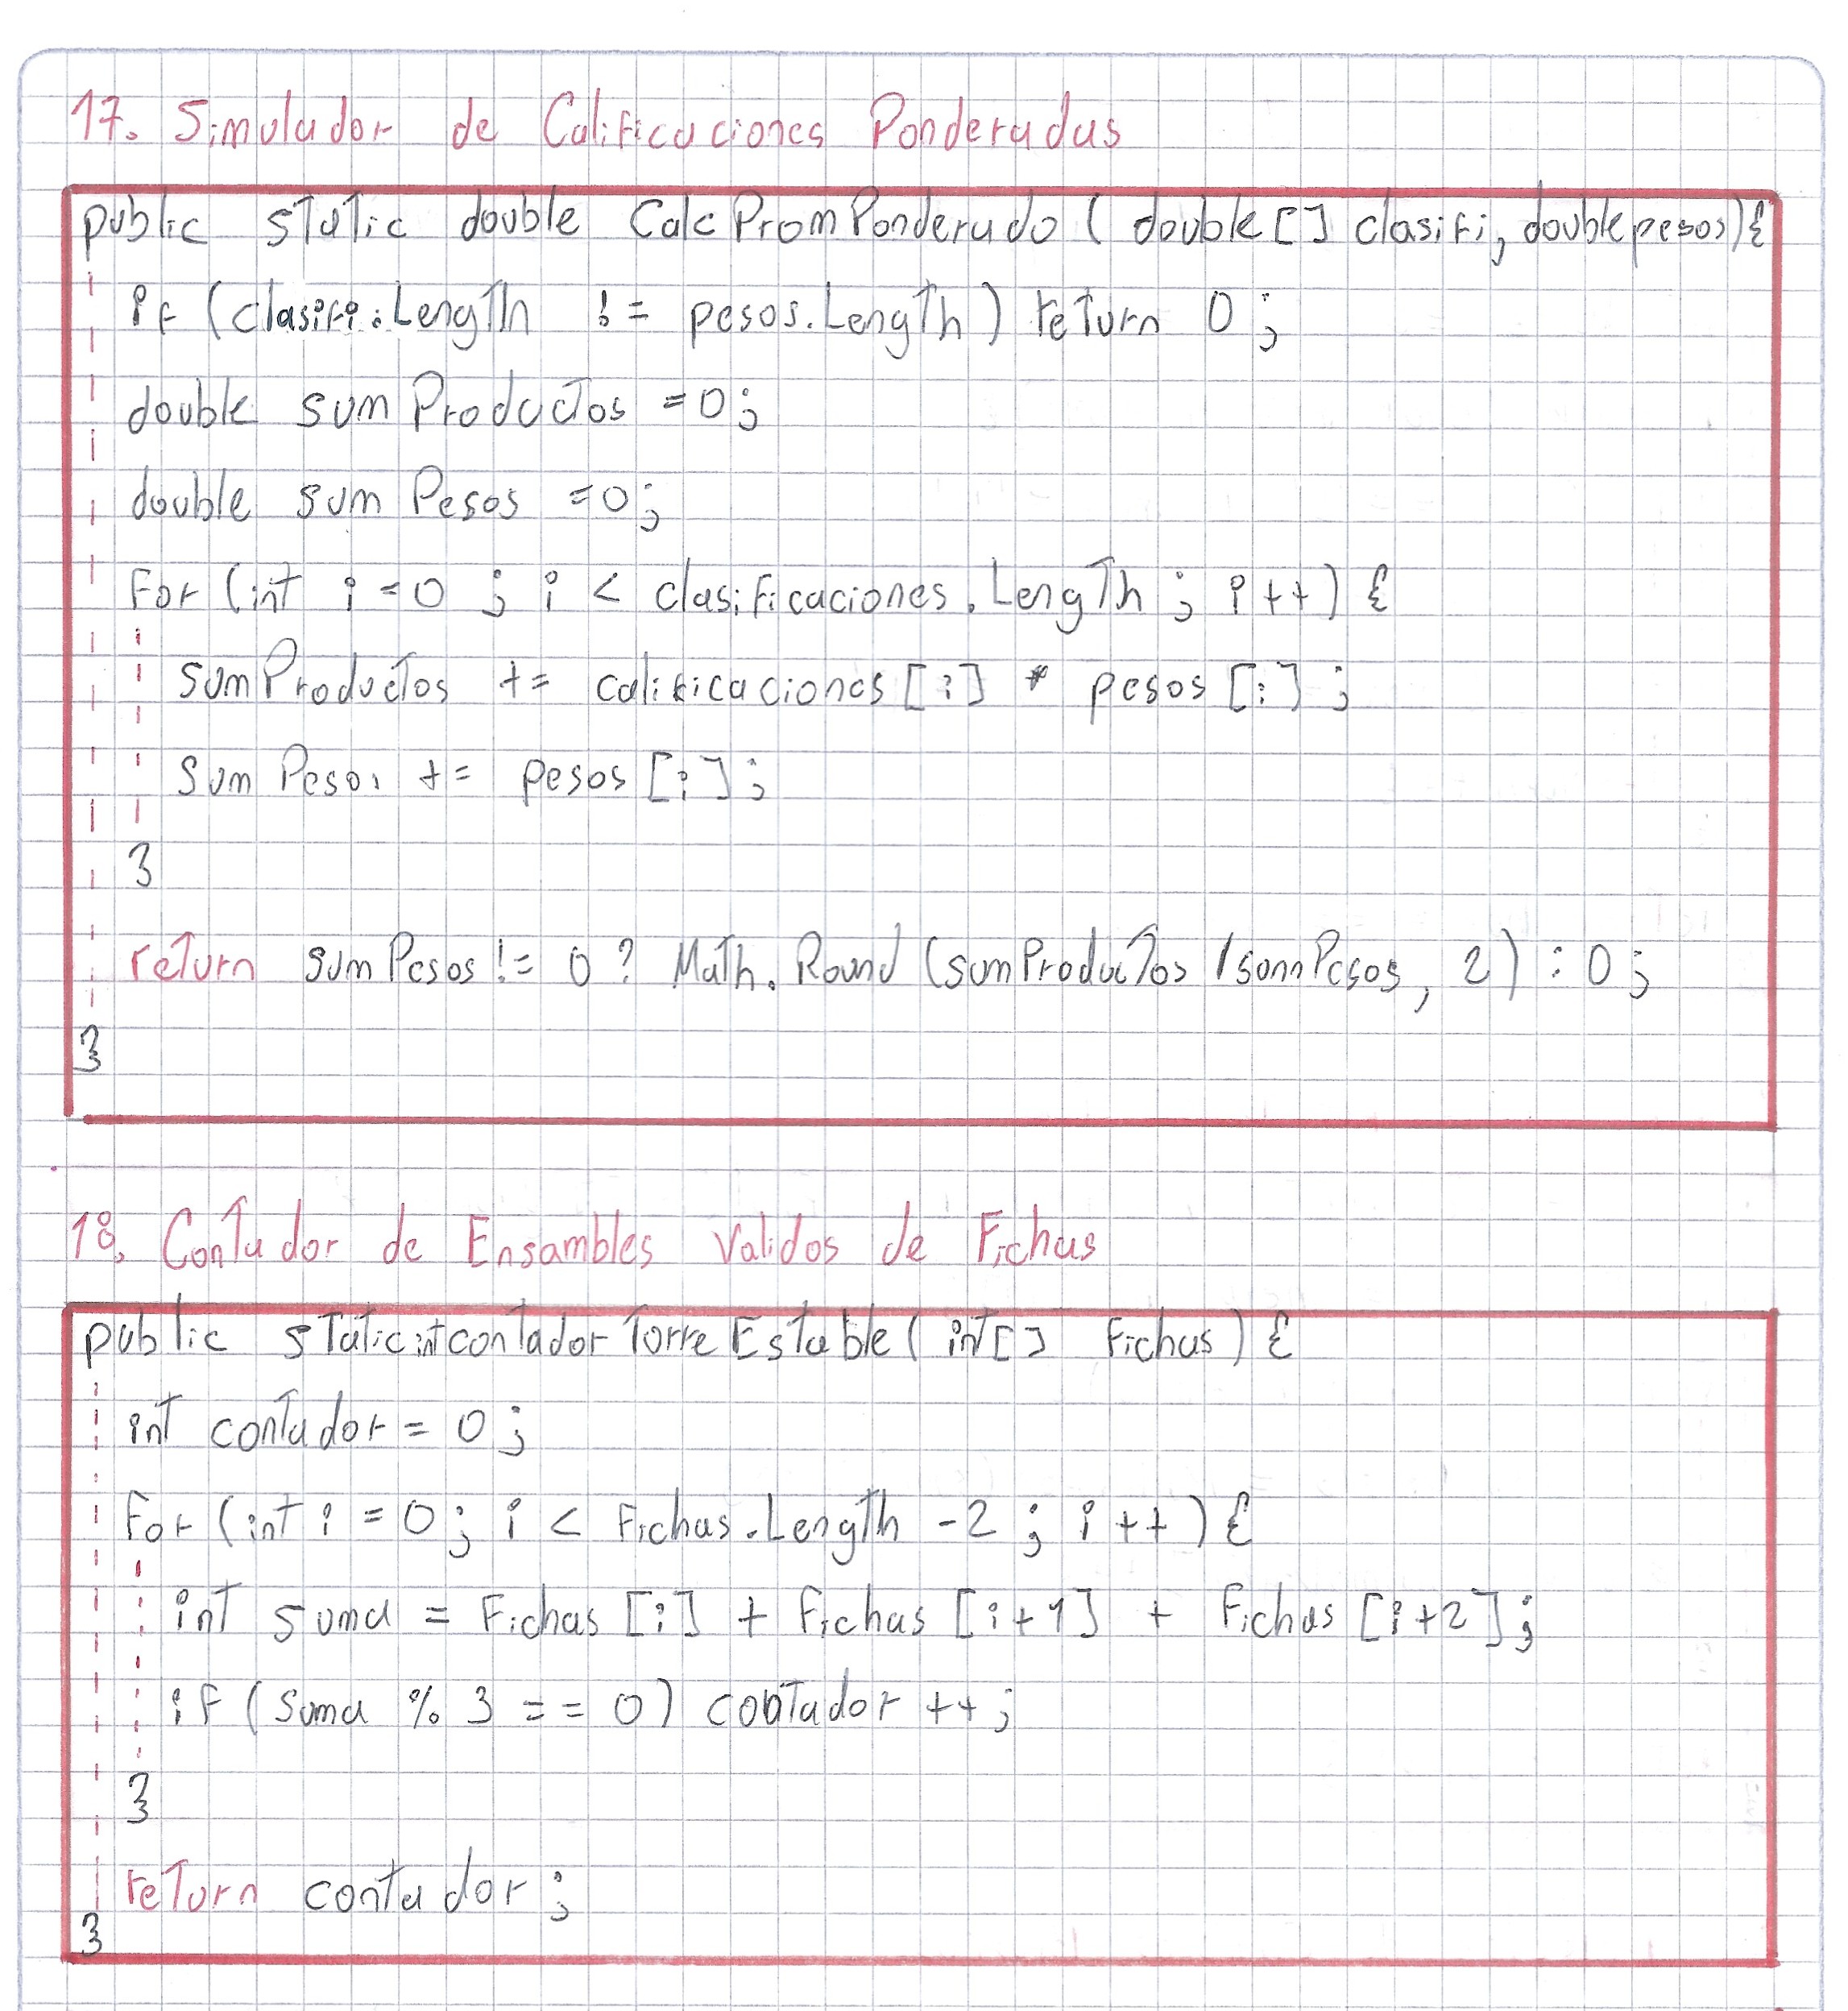 17. Simulador de Calificaciones Ponderadas
public static double CalcPromPonderado ( double [] clasifi, double pesos) {
if (clasifi.Length != pesos.Length) return 0 ;
double sumProductos = 0;
double sumPesos = 0;
For (int i = 0 ; i < clasificaciones.Length ; i ++) {
sumProductos += calificaciones [i] * pesos [i] ;
sumPesos += pesos [i] ;
}
return sumPesos != 0 ? Math.Round (sumProductos / somPesos, 2) : 0 ;
}
18. Contador de Ensambles Validos de Fichas
public static int contadorTorreEstable ( int[] Fichas) {
int contador = 0 ;
For (int i = 0 ; i < Fichas.Length - 2 ; i ++ ) {
int suma = Fichas [i] + Fichas [i+1] + Fichas [i+2] ;
if (suma % 3 == 0) contador ++ ;
}
return contador ;
}